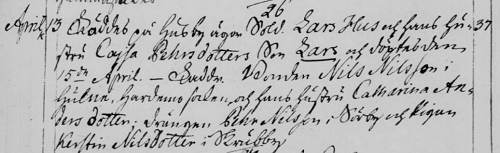 26
April 13 Föddes på Husby ägor Sold. Lars Hus och hans Hu- 37
stru Cajsa Pehrsdotters Son Lars och döptes den
15de April. — Faddr. Bonden Nils Nilsson i
och hans hustru Catharina An-
dersdotter; drängen Pehr Nilsson i Sörby och Pigan
Kerstin Nilsdotter i Skräbby